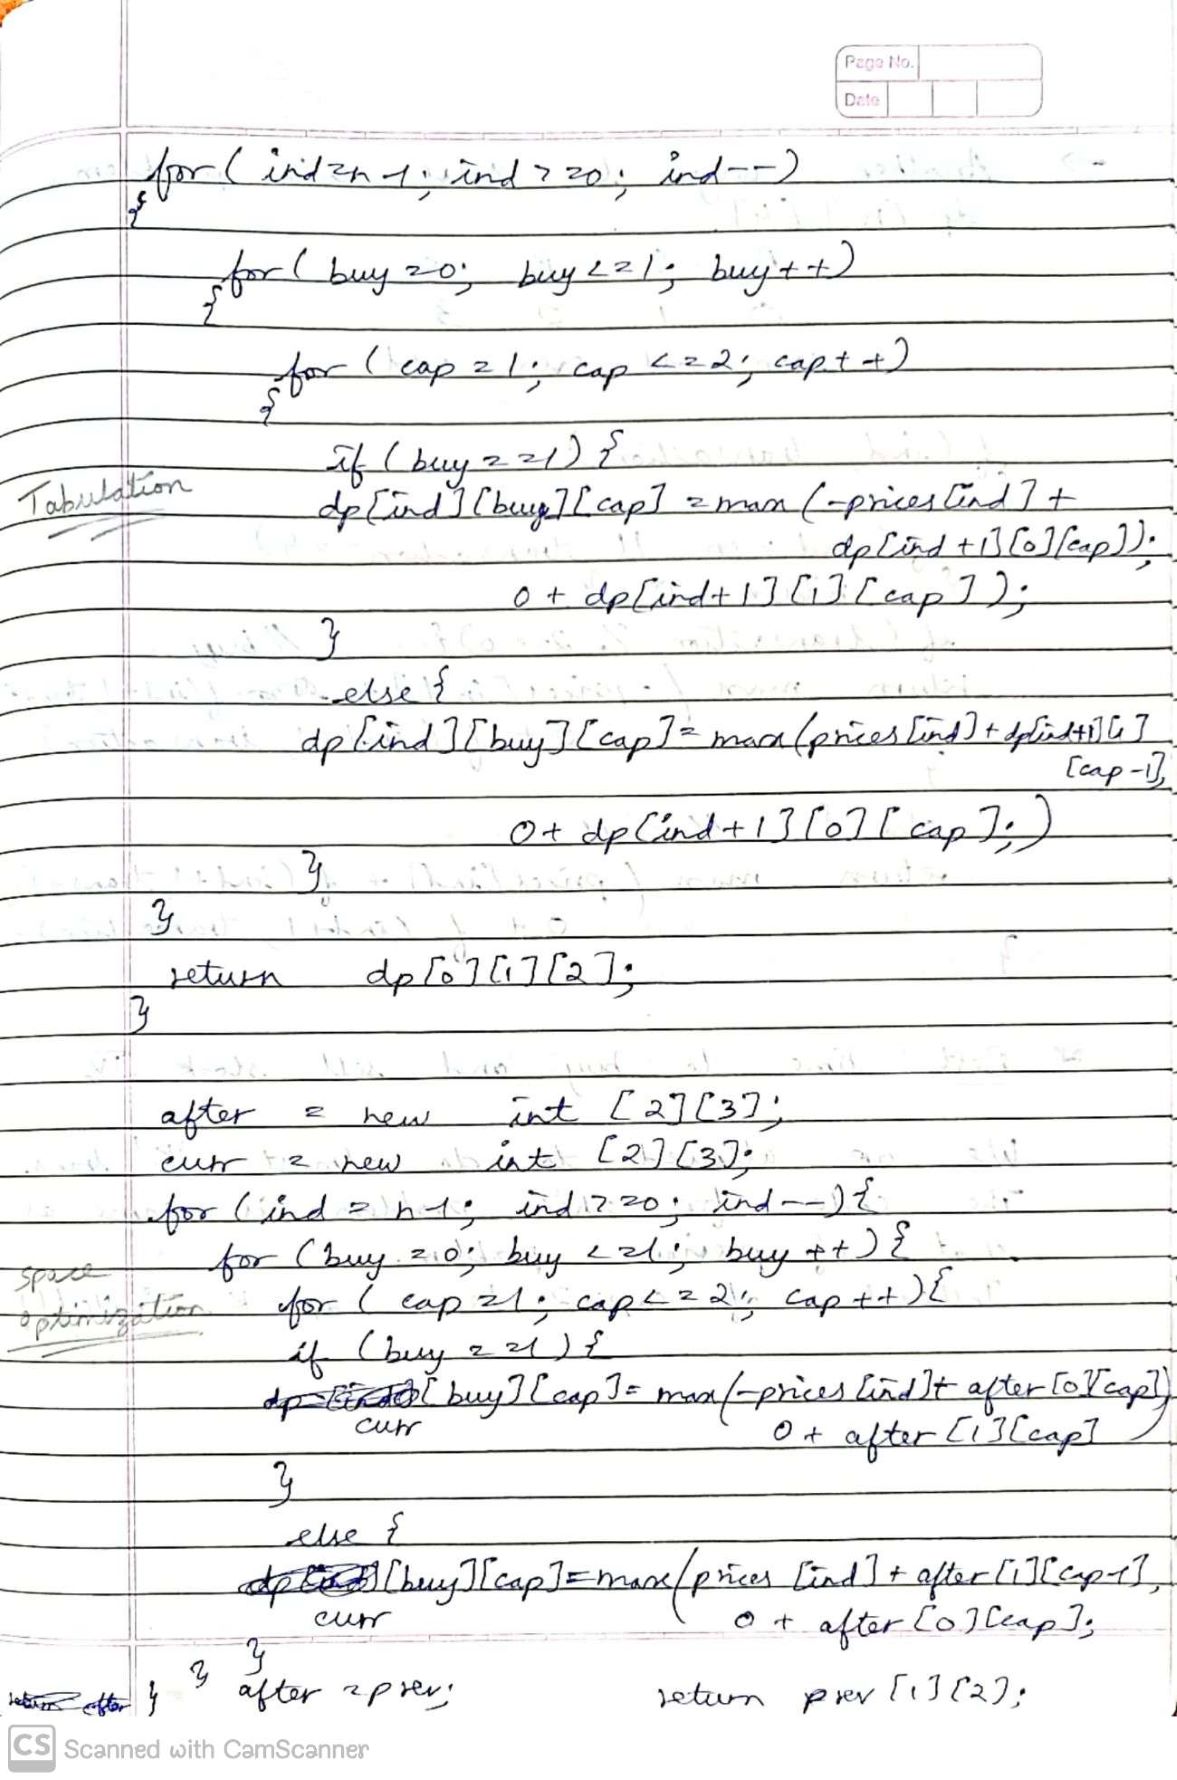 Page No.
Date
for ( ind = n-1; ind >= 0; ind--)
{
for ( buy = 0; buy <= 1; buy++)
{
for ( cap = 1; cap <= 2; cap++)
{
if ( buy == 1) {
Tabulation
dp[ind][buy][cap] = max (-prices[ind] +
dp[ind+1][0][cap]);
0 + dp[ind+1][1][cap]);
}
else {
dp[ind][buy][cap] = max(prices[ind] + dp[ind+1][1]
[cap-1],
0 + dp[ind+1][0][cap];)
}
}
return dp[0][1][2];
}
after = new int [2][3];
curr = new int [2][3];
for (ind = n-1; ind >= 0; ind--) {
for (buy = 0; buy <= 1; buy++) {
space
optimization
for ( cap = 1; cap <= 2; cap++) {
if (buy == 1) {
[buy][cap] = max(-prices[ind] + after[0][cap],
curr 0 + after[1][cap] )
}
else {
[buy][cap] = max(prices[ind] + after[1][cap-1],
curr 0 + after[0][cap];
}
} } after = prev; return prev[1][2];
return after
CS Scanned with CamScanner